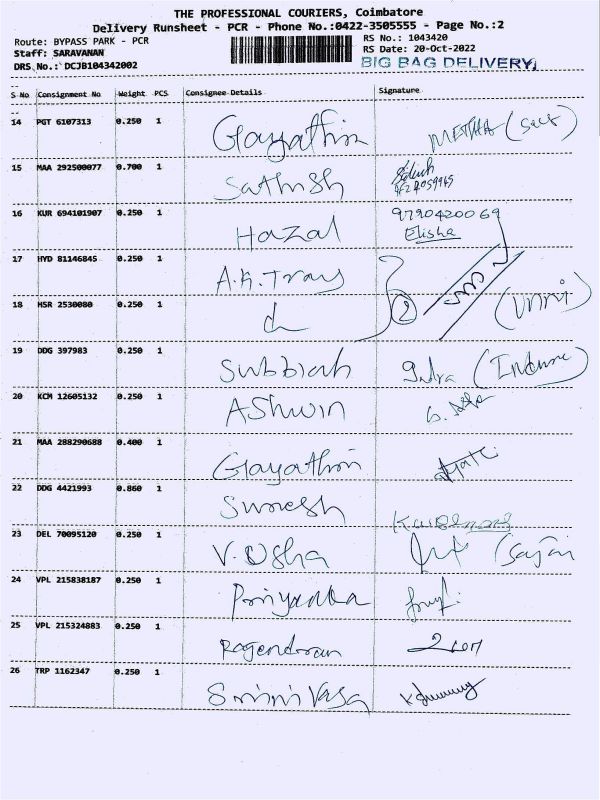 THE PROFESSIONAL COURIERS, Coimbatore
Delivery Runsheet - PCR - Phone No.:0422-3505555 - Page No.:2
Route: BYPASS PARK - PCR
RS No.: 1043420
Staff: SARAVANAN
RS Date: 20-Oct-2022
DRS No.: DCJB104342002
BIG BAG DELIVERY
S No Consignment No Weight PCS Consignee Details Signature
14 PGT 6107313 0.250 1 Gayathiri
15 MAA 292500077 0.700 1 Sathish
16 KUR 694101907 0.250 1 Hazal 9790420069
Elisha
17 HYD 81146845 0.250 1 A.K. Trays
18 MSR 2530080 0.250 1 2
19 DDG 397983 0.250 1 Subbiah Indra
20 KCM 12605132 0.250 1 Ashwin
21 MAA 288290688 0.400 1 Gayathiri
22 DDG 4421993 0.860 1 Suresh
23 DEL 70095120 0.250 1 V. Usha
24 VPL 215838187 0.250 1 Priyanka
25 VPL 215324883 0.250 1 Rogendran
26 TRP 1162347 0.250 1 Srinivasa